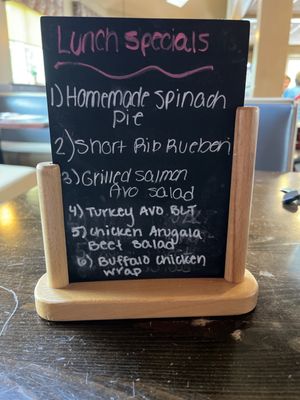 Lunch Specials
1) Homemade Spinach
Pie
2) Short Rib Rueben
3) Grilled Salmon
Avo Salad
4) Turkey Avo BLT
5) Chicken Arugala
Beet Salad
6) Buffalo Chicken
Wrap